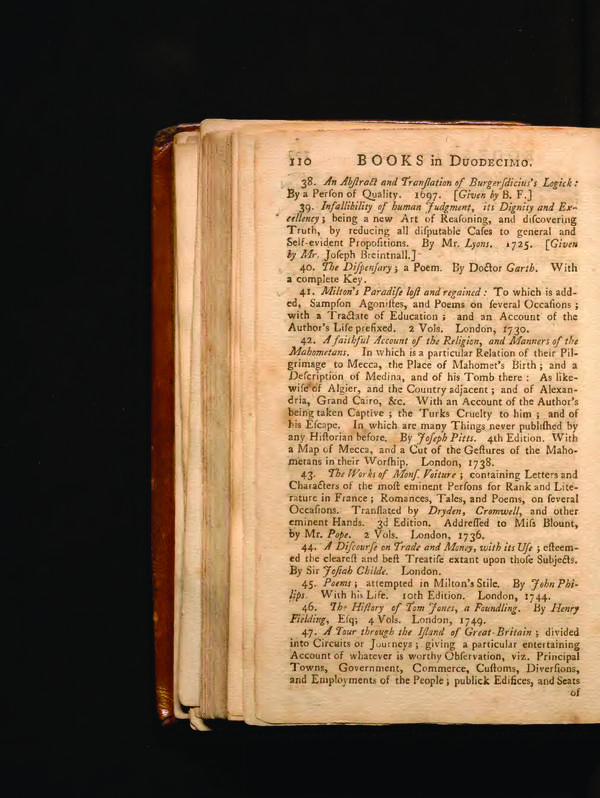 110 BOOKS in DUODECIMO.
38. An Abſtract and Tranſlation of Burgerſdicius's Logick:
By a Perſon of Quality. 1697. [Given by B. F.]
39. Infallibility of human Judgment, its Dignity and Ex-
cellency; being a new Art of Reaſoning, and diſcovering
Truth, by reducing all diſputable Caſes to general and
Self-evident Propoſitions. By Mr. Lyons. 1725. [Given
by Mr. Joſeph Breintnall.]
40. The Diſpenſary; a Poem. By Doctor Garth. With
a complete Key.
41. Milton's Paradiſe loſt and regained: To which is add-
ed, Sampſon Agoniſtes, and Poems on ſeveral Occaſions;
with a Tractate of Education; and an Account of the
Author's Life prefixed. 2 Vols. London, 1730.
42. A faithful Account of the Religion, and Manners of the
Mahometans. In which is a particular Relation of their Pil-
grimage to Mecca, the Place of Mahomet's Birth; and a
Deſcription of Medina, and of his Tomb there: As like-
wiſe of Algier, and the Country adjacent; and of Alexan-
dria, Grand Cairo, &c. With an Account of the Author's
being taken Captive; the Turks Cruelty to him; and of
his Eſcape. In which are many Things never publiſhed by
any Hiſtorian before. By Joſeph Pitts. 4th Edition. With
a Map of Mecca, and a Cut of the Geſtures of the Maho-
metans in their Worſhip. London, 1738.
43. The Works of Monſ. Voiture; containing Letters and
Characters of the moſt eminent Perſons for Rank and Lite-
rature in France; Romances, Tales, and Poems, on ſeveral
Occaſions. Tranſlated by Dryden, Cromwell, and other
eminent Hands. 3d Edition. Addreſſed to Miſs Blount,
by Mr. Pope. 2 Vols. London, 1736.
44. A Diſcourſe on Trade and Money, with its Uſe; eſteem-
ed the cleareſt and beſt Treatiſe extant upon thoſe Subjects.
By Sir Joſiah Childe. London.
45. Poems; attempted in Milton's Stile. By John Phi-
lips. With his Life. 10th Edition. London, 1744.
46. The Hiſtory of Tom Jones, a Foundling. By Henry
Fielding, Eſq; 4 Vols. London, 1749.
47. A Tour through the Iſland of Great-Britain; divided
into Circuits or Journeys; giving a particular entertaining
Account of whatever is worthy Obſervation, viz. Principal
Towns, Government, Commerce, Cuſtoms, Diverſions,
and Employments of the People; publick Edifices, and Seats
of